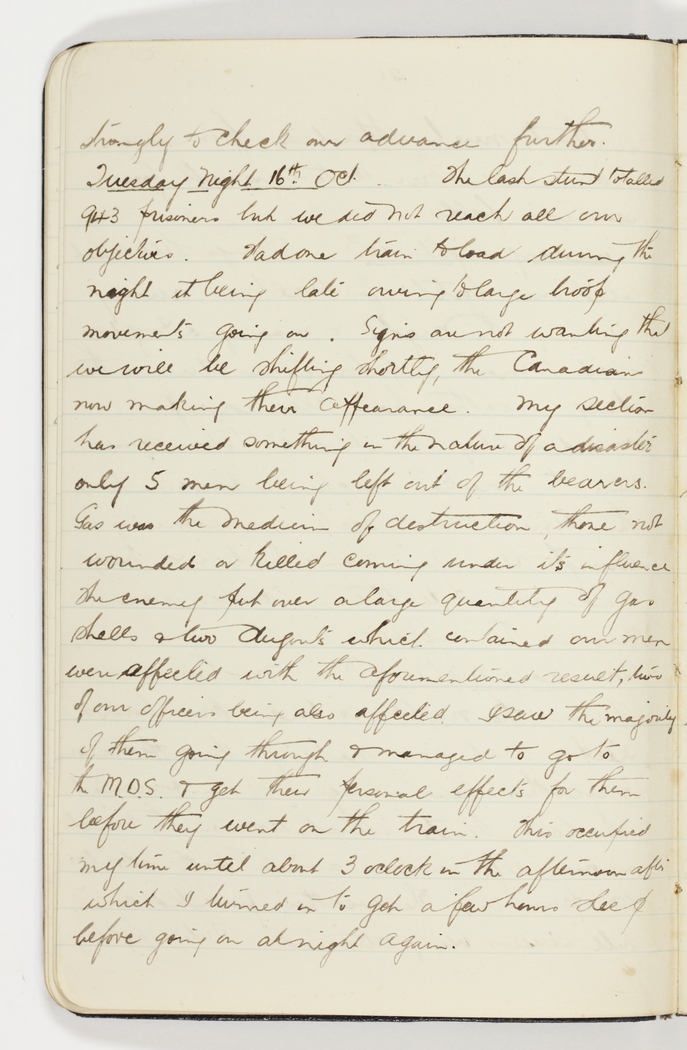 strongly to check our advance further.
Tuesday Night 16th Oct. The last stunt totalled
943 prisoners but we did not reach all our
objectives. Had one train to load during the
night it being late owing to large troop
movements going on. Signs are not wanting that
we will be shifting shortly, the Canadians
now making their appearance. My section
has received something in the nature of a disaster
only 5 men being left out of the bearers.
Gas was the medium of destruction, those not
wounded or killed coming under its influence
The enemy put over a large quantity of gas
shells & two dugouts which contained our men
were affected with the aforementioned result, two
of our officers being also affected. I saw the majority
of them going through & managed to go to
the M.D.S. & get their personal effects for them
before they went on the train. This occupied
my time until about 3 oclock in the afternoon after
which I turned in to get a few hours sleep
before going on at night again.